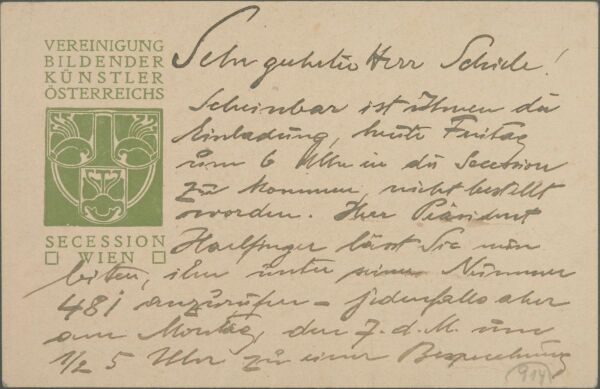 VEREINIGUNG
BILDENDER
KÜNSTLER
ÖSTERREICHS
SECESSION
WIEN
Sehr geehrter Herr Schiele!
Scheinbar ist Ihnen die
Einladung, heute Freitag
um 6 Uhr in die Secession
zu kommen, nicht bestellt
worden. Herr Präsident
Harlfinger lässt Sie nun
bitten, ihn unter seiner Nummer
481 anzurufen – jedenfalls aber
am Montag, den 7. d. M. um
1/2 5 Uhr zu einer Besprechung
914